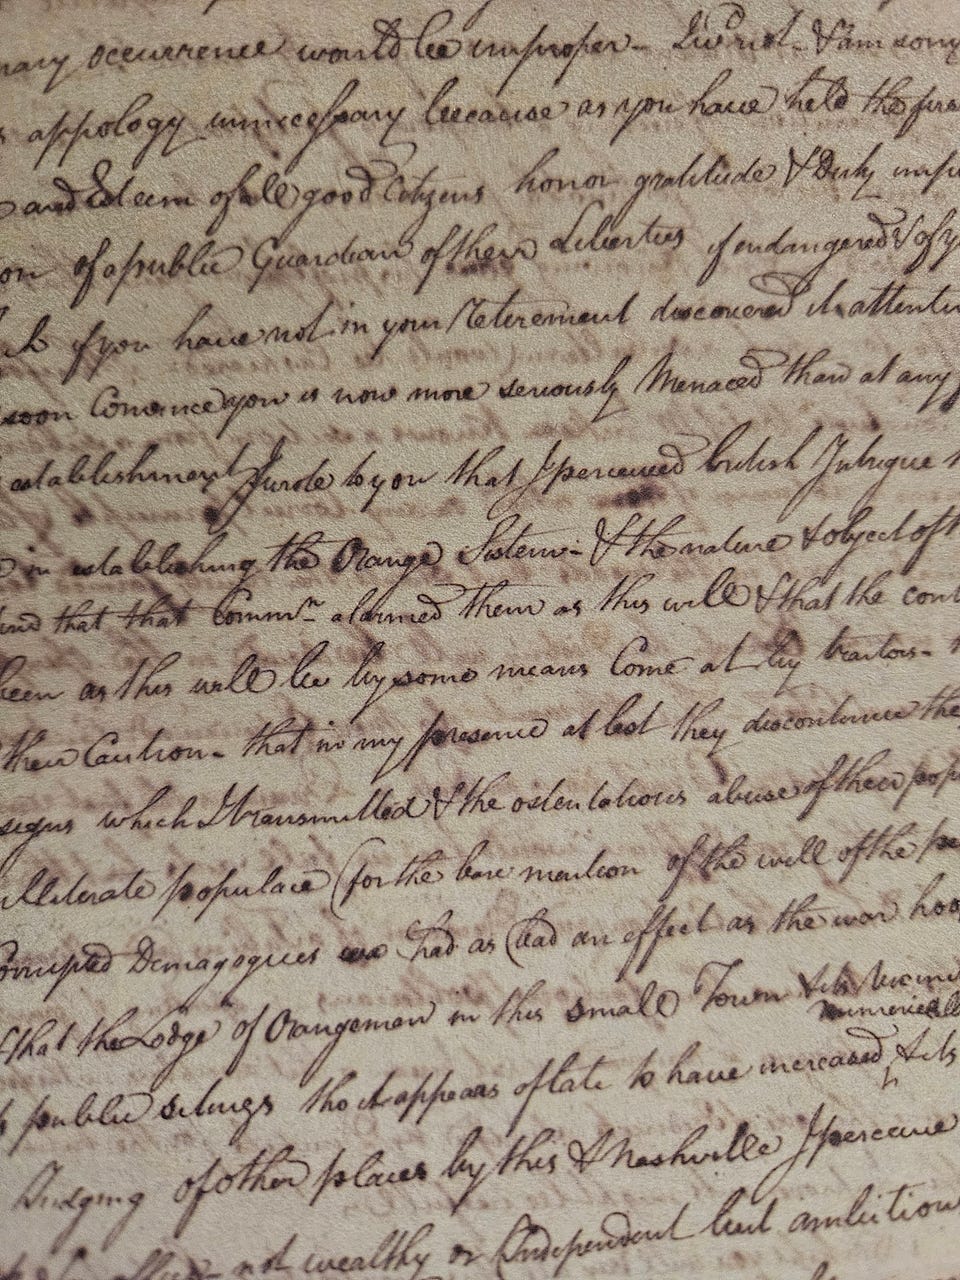 occurrence would be improper- Sir not- & am sorry
appology unnecessary because as you have held the
and Esteem of all good Citizens honor gratitude & Duty
of a public Guardian of their Liberties if endangered & of
if you have not in your Reterement discovered it attentio
soon Convince you is now more seriously Menaced than at any
establishment I wrote to you that I perceived british Intrigue
in establishing the Orange Sistem- & the nature & object of th
that that Commn alarmed them as this will & that the cont
been as this will be by some means Come at by traitors-
their Caution- that in my presence at lest they discontinue the
signs which I transmitted & the ostentatious abuse of their pop
illiterate populace (for the bare mention of the will of the pe
Corrupted Demagogues had as bad an effect as the war hoo
that the Lodge of Orangemen in this small Town & its Vicini
numerical
public setings tho it appears of late to have increased, & its
Judging of other places by this & Nashville I perceive
not wealthy or Independent but ambitious